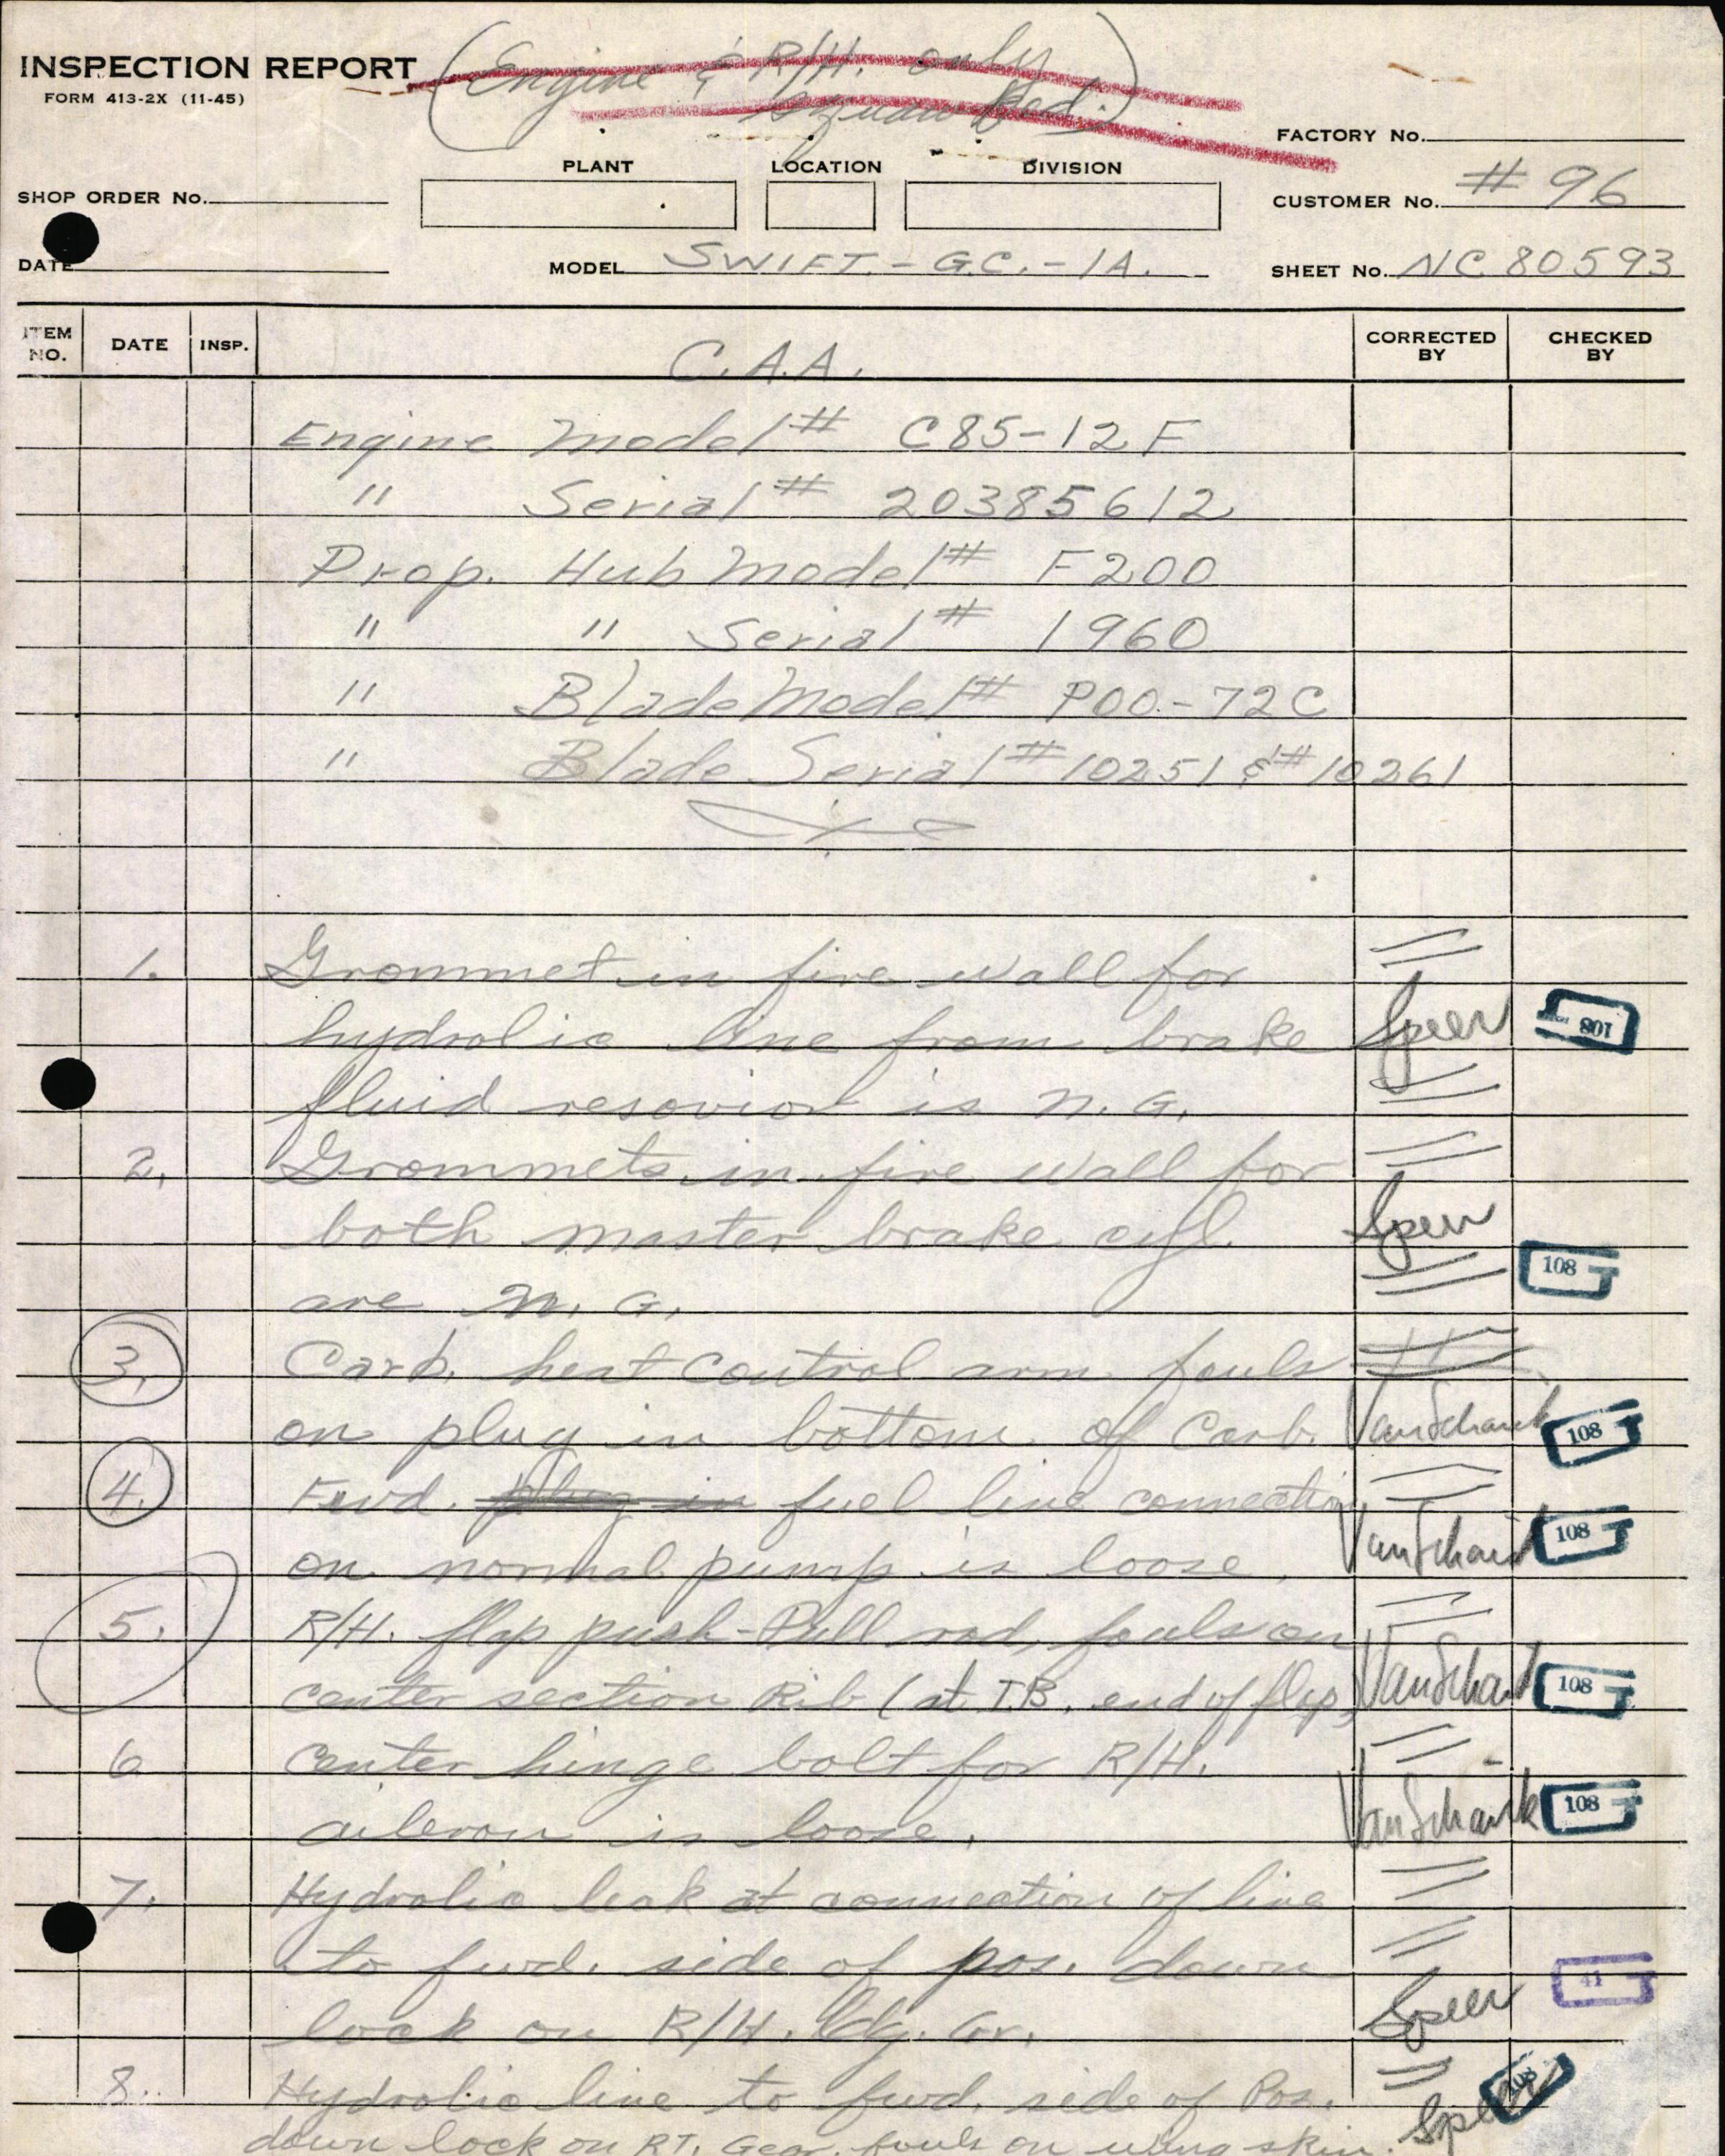 (Engine & R/H. only
INSPECTION REPORT
FORM 413-2X (11-45)
FACTORY No.
PLANT LOCATION DIVISION
SHOP ORDER No.
CUSTOMER No. # 96
DATE
MODEL SWIFT.-G.C.-1A.
SHEET No. NC 80593
ITEM NO. DATE INSP. C.A.A. CORRECTED BY CHECKED BY
Engine Model # C85-12F
" Serial # 20385612
Prop. Hub Model # F200
" " Serial # 1960
" Blade Model # P00.-72C
" Blade Serial # 10251 & # 10261
1. Grommet in fire wall for
hydrolic line from brake Speer 108
fluid resovior is N.G.
2. Grommets in fire wall for
both master brake cyl. Speer
108
are N.G.
3. Carb. heat control arm fouls
on plug in bottom of Carb. VanSchaick 108
4. Fwd. plug in fuel line connection
on normal pump is loose. VanSchaick 108
5. R/H. flap push-Pull rod, fouls on
center section Rib (at I.B. end of flap) VanSchaick 108
6 Center hinge bolt for R/H.
aileron is loose. VanSchaick 108
7. Hydrolic leak at connection of line
to fwd. side of pos. down 41
lock on R/H. Ldg. Gr. Speer
8. Hydrolic line to fwd. side of Pos. 108
down lock on RT. Gear. fouls on wing skin. Speer